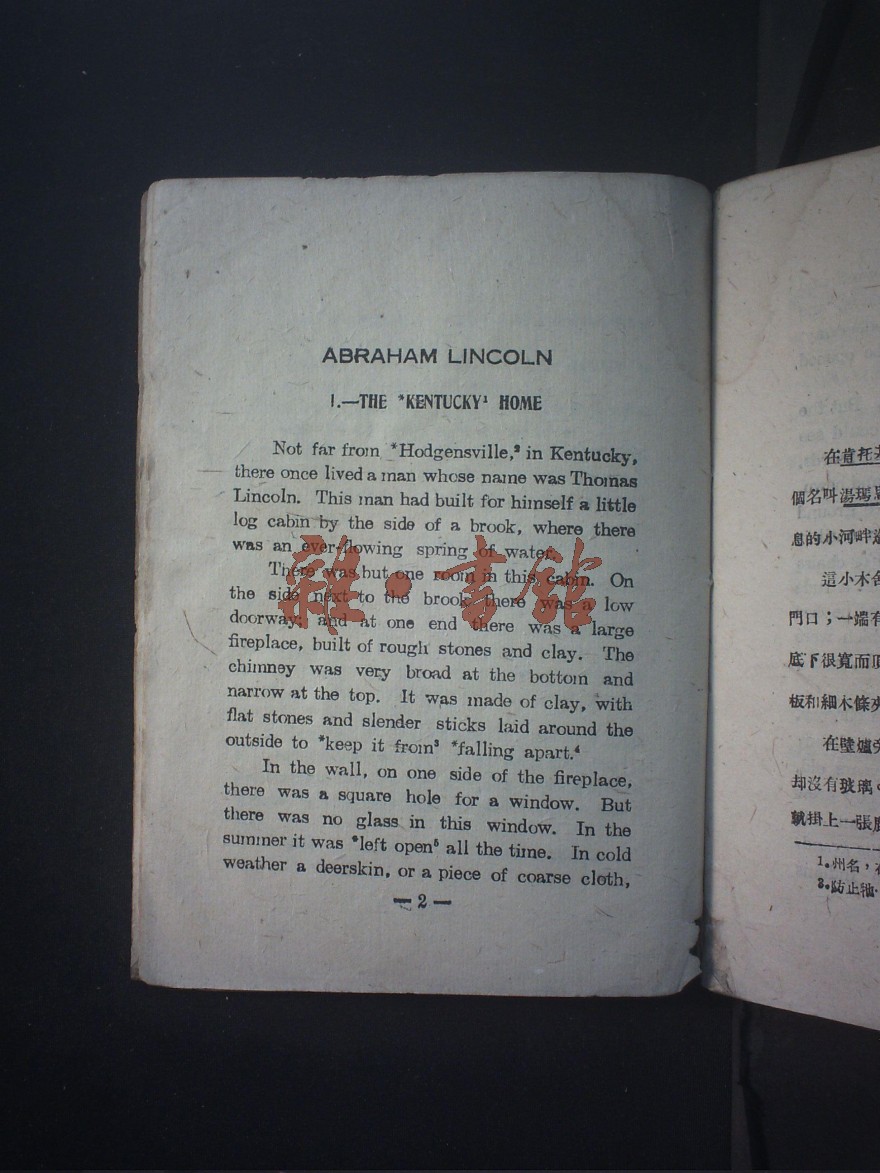 ABRAHAM LINCOLN
I.—THE *KENTUCKY¹ HOME
Not far from *Hodgensville,² in Kentucky,
there once lived a man whose name was Thomas
Lincoln. This man had built for himself a little
log cabin by the side of a brook, where there
was an ever-flowing spring of water.
There was but one room in this cabin. On
the side next to the brook there was a low
doorway; and at one end there was a large
fireplace, built of rough stones and clay. The
chimney was very broad at the bottom and
narrow at the top. It was made of clay, with
flat stones and slender sticks laid around the
outside to *keep it from³ *falling apart.⁴
In the wall, on one side of the fireplace,
there was a square hole for a window. But
there was no glass in this window. In the
summer it was *left open⁵ all the time. In cold
weather a deerskin, or a piece of coarse cloth,
— 2 —
雜·書館
在肯托
個名叫湯瑪
息的小河畔
這小木舍
門口；一端有
底下很寬而頂
板和細木條夾
在壁爐旁
却沒有玻璃。
就掛上一張
1.州名，
3.防止牠